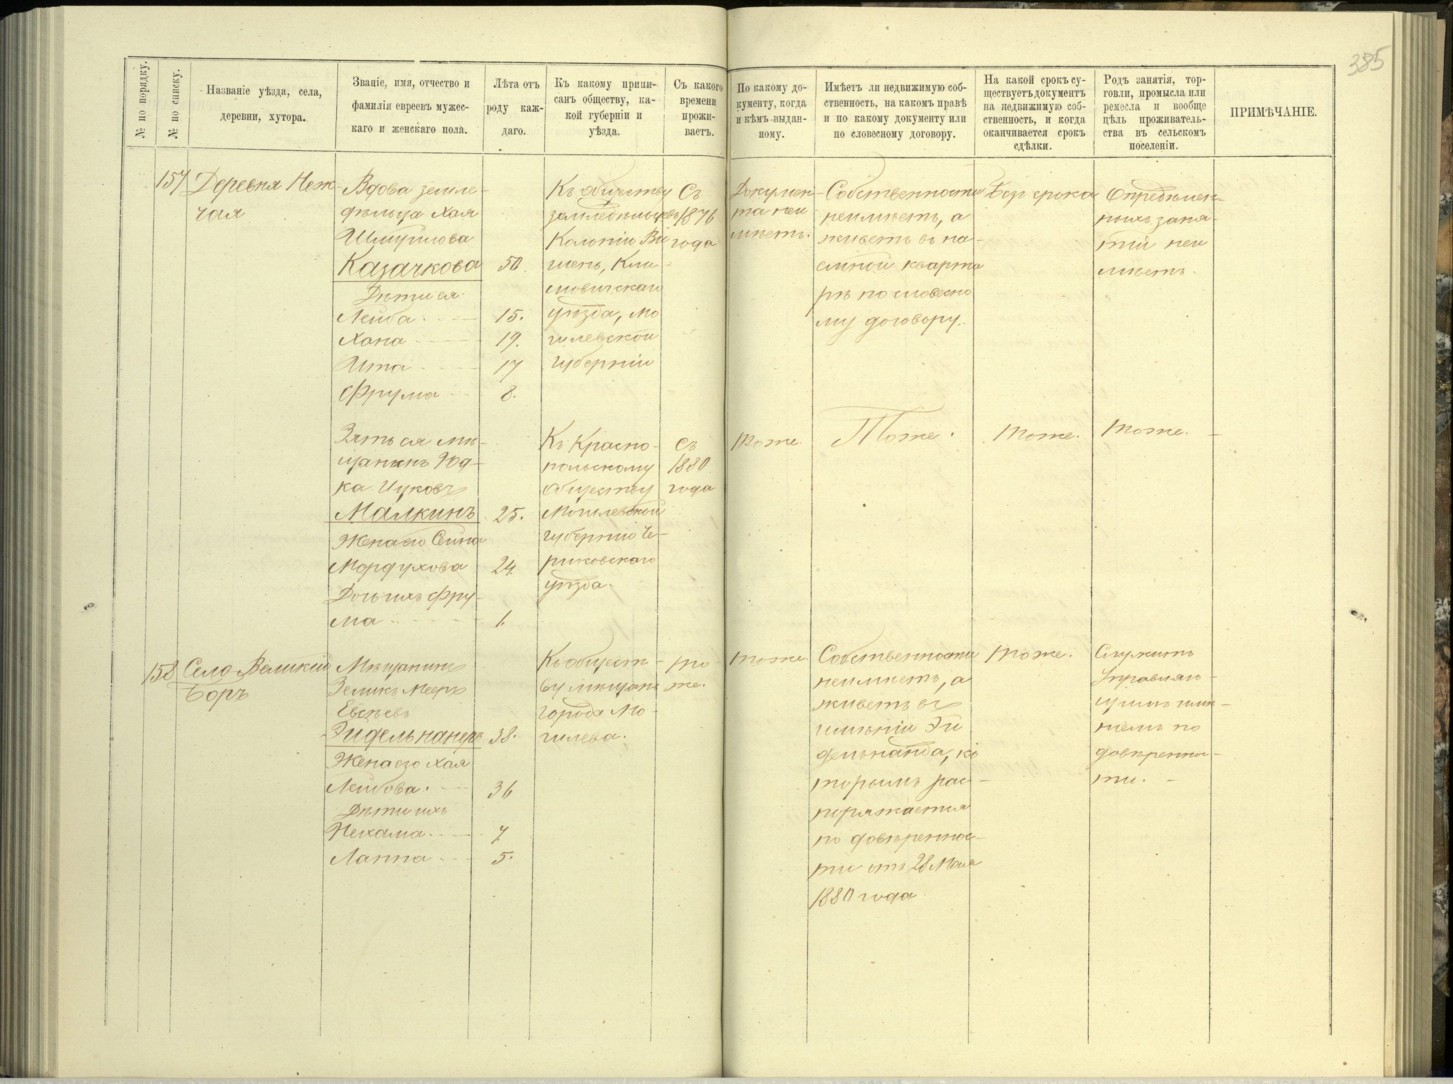 385
№ по порядку.
№ по списку.
Названіе уѣзда, села,
деревни, хутора.
Званіе, имя, отчество и
фамилія евреевъ мужес-
каго и женскаго пола.
Лѣта отъ
роду каж-
даго.
Къ какому припи-
санъ обществу, ка-
кой губерніи и
уѣзда.
Съ какого
времени
прожи-
ваетъ.
По какому до-
кументу, когда
и кѣмъ выдан-
ному.
Имѣетъ ли недвижимую соб-
ственность, на какомъ правѣ
и по какому документу или
по словесному договору.
На какой срокъ су-
ществуетъ документъ
на недвижимую соб-
ственность, и когда
оканчивается срокъ
сдѣлки.
Родъ занятія, тор-
говли, промысла или
ремесла и вообще
цѣль проживатель-
ства въ сельскомъ
поселеніи.
ПРИМѢЧАНІЕ.
157
Деревня Неж-
чая
Вдова земле-
дѣльца Хая
Шмуилова
Казачкова
50.
Дѣти ея
Лейба
15.
Хана
19.
Ита
17
Фрума
8.
Къ обществу
земледѣльцевъ
Колоніи
Кли-
мовичскаго
уѣзда, Мо
гилевской
губерніи
Съ
1876
года
Докумен-
та неи
мѣетъ.
Собственности
неимѣетъ, а
живетъ въ на-
емной кварти
рѣ по словесно
му договору.
Безъ срока
Опредѣлен-
ныхъ заня-
тій неи
мѣетъ.
Зять ея мѣ-
щанинъ Юд-
ка Ицковъ
Малкинъ
25.
Жена его
Мордухова
24
Дочь ихъ Фру-
ма
1.
Къ Красно-
польскому
обществу
Могилевской
губерніи Че-
риковскаго
уѣзда.
Съ
1880
года
тоже
Тоже.
тоже.
тоже.
158
Село Великій
Боръ
Мѣщанинъ
Зеликъ Мееръ
Евсѣевъ
Эйдельнантъ
38.
Жена его Хая
Лейбова.
36
Дѣти ихъ
Нехама.
7
Лаппа
5.
Къ общест-
ву мѣщанъ
города Мо-
гилева.
то
же.
тоже
Собственности
неимѣетъ, а
живетъ въ
имѣніи Эй
дельнанта, ко
торымъ рас-
поряжается
по довѣреннос-
ти отъ 28 Мая
1880 года
тоже.
Служитъ
Управляю-
щимъ имѣ-
ніемъ по
довѣренно-
ти.